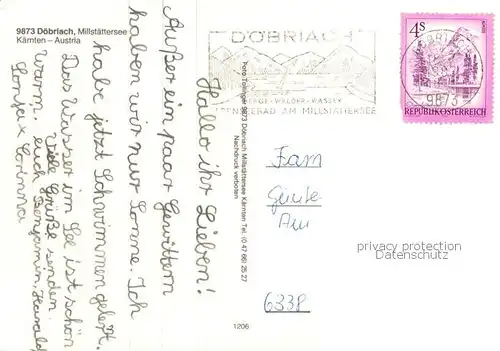 9873 Döbriach, Millstättersee
Kärnten – Austria
Hallo ihr Lieben!
Außer ein paar Gewittern
haben wir nur Sonne. Ich
habe jetzt Schwimmen gelernt.
Das Wasser im See ist schön
warm. Viele Grüße senden
euch Benjamin, Harald
Corinna
Foto Tollinger 9873 Döbriach Millstättersee Kärnten Tel. (0 47 66) 25 27
Nachdruck verboten
1206
DÖBRIACH
BERGE-WÄLDER-WASSER
AM MILLSTÄTTERSEE
4 S
9873
REPUBLIK ÖSTERREICH
Fam
Au
6338
privacy protection